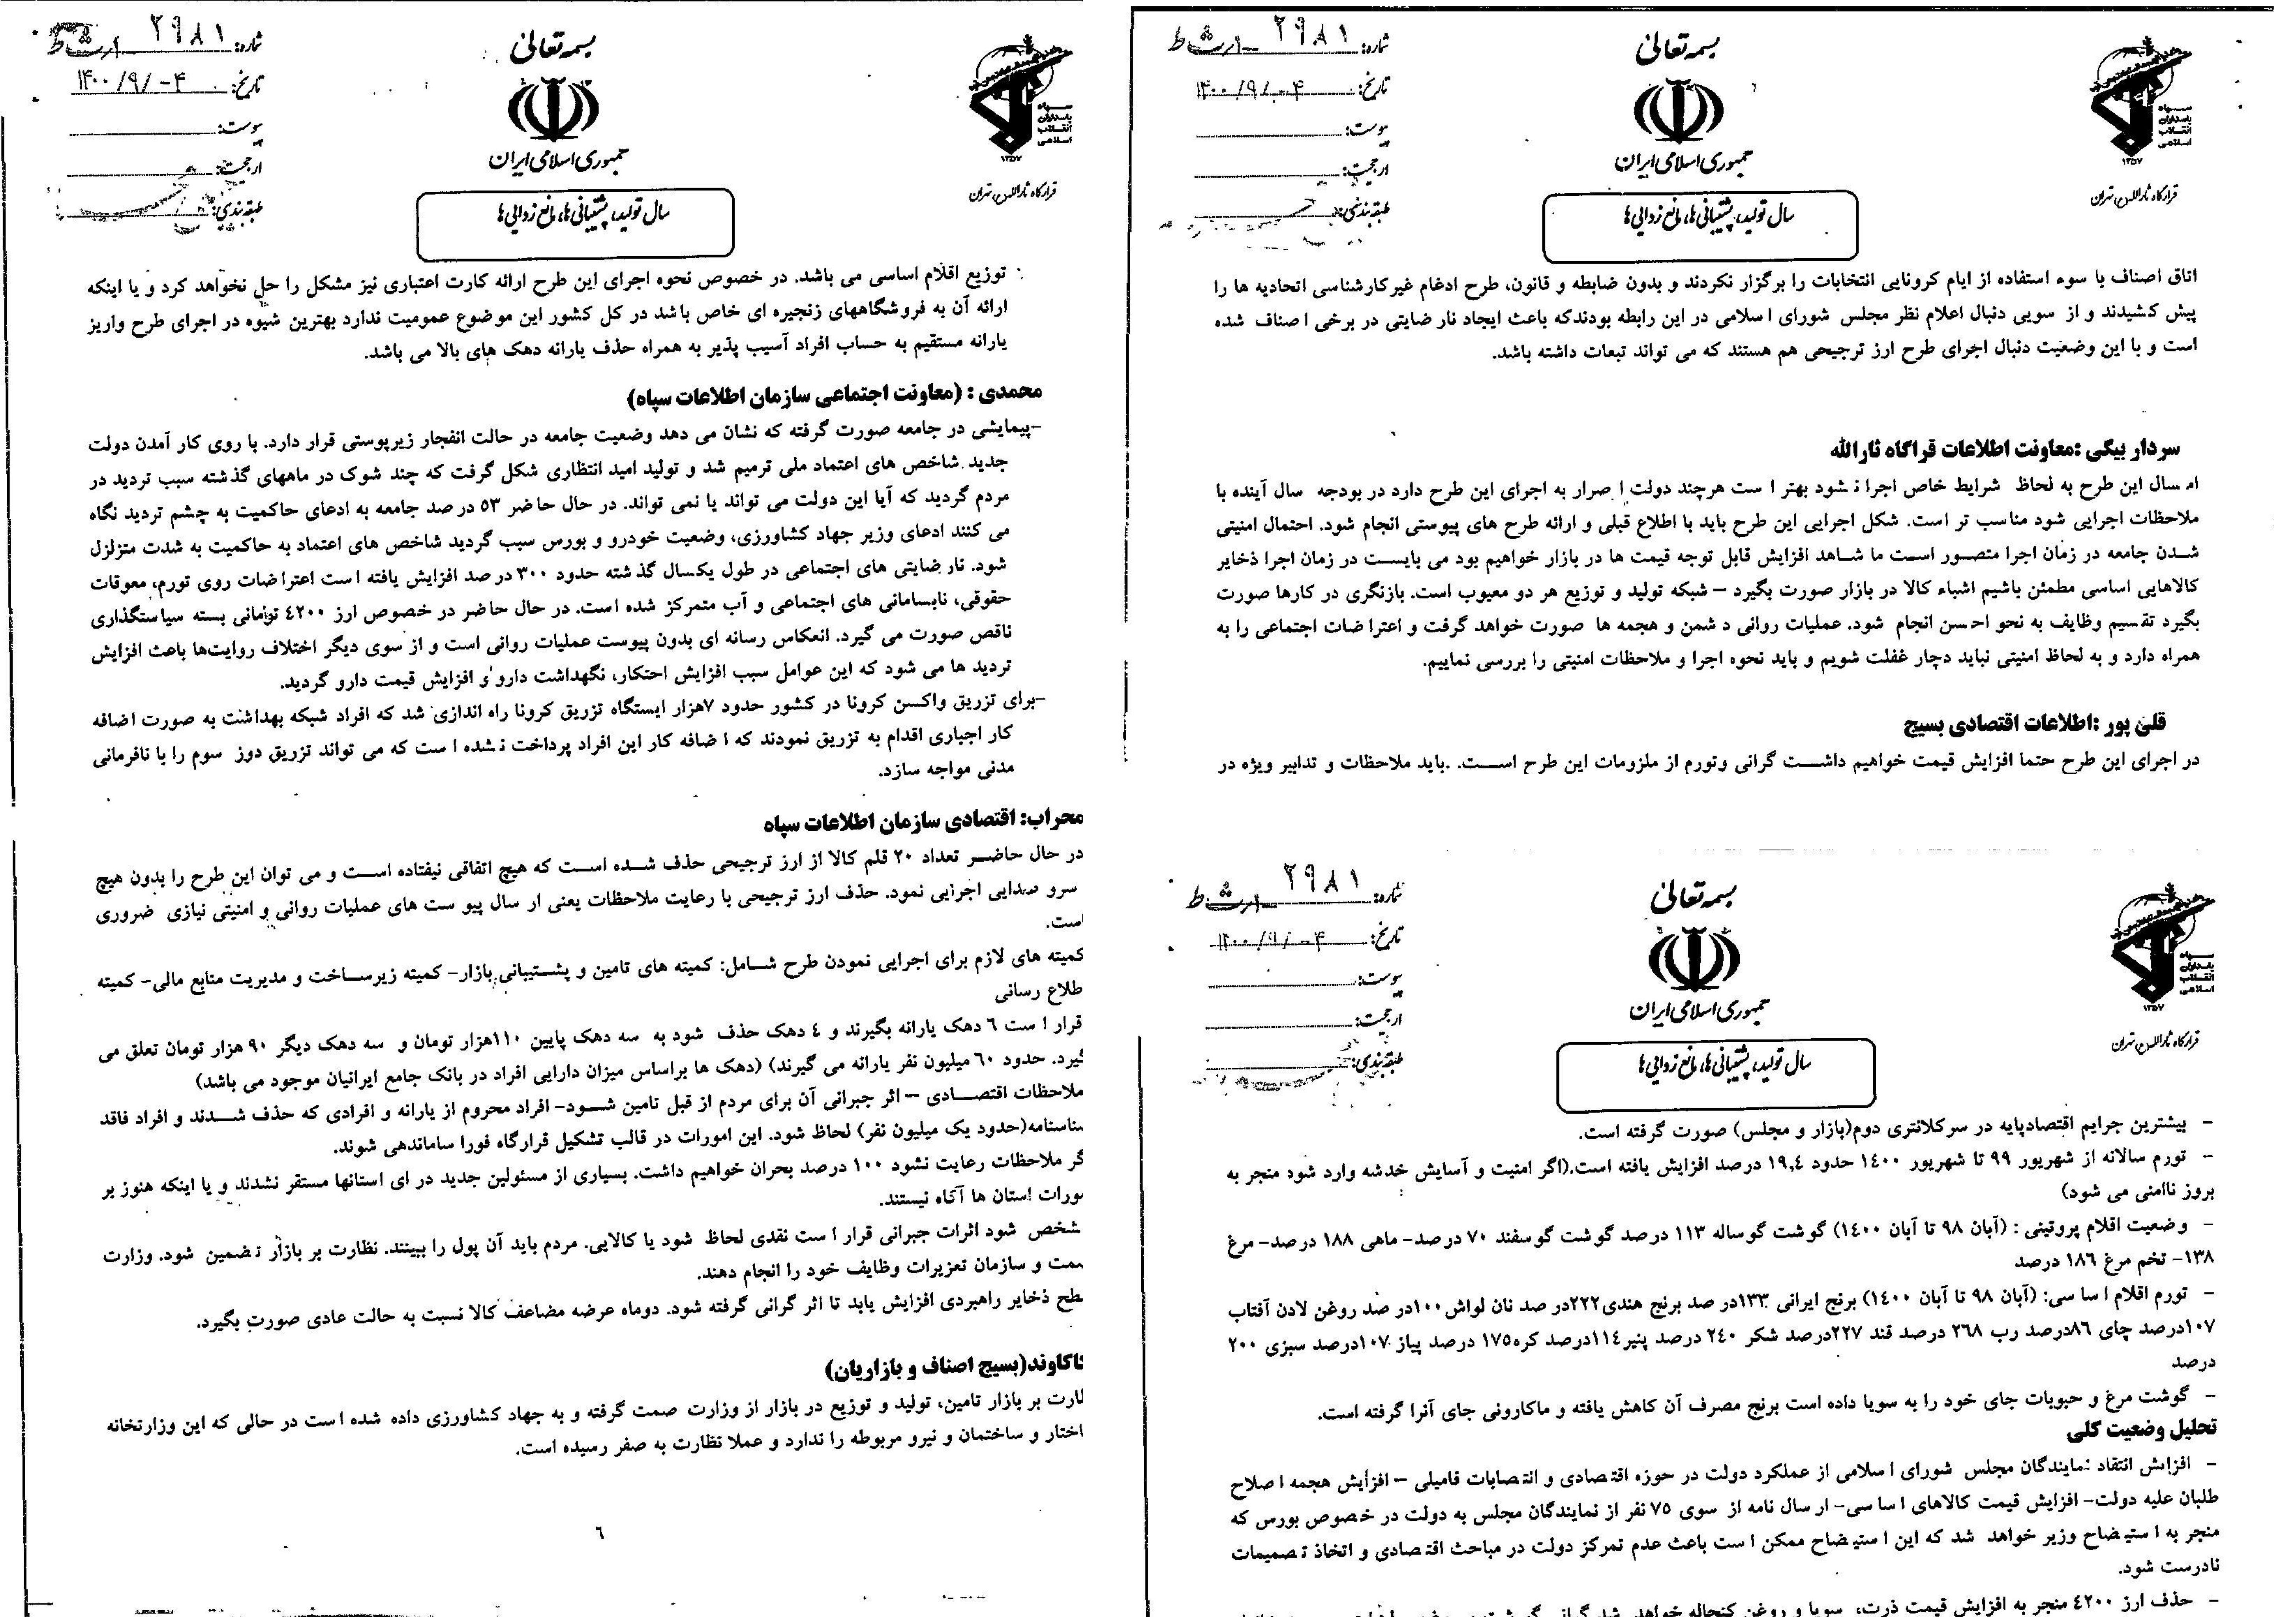 شماره: ۲۹۸۱
تاریخ: ۱۴۰۰/۹/۰۴
پیوست:
ارجحیت:
طبقه‌بندی:
بسمه تعالی
جمهوری اسلامی ایران
سال تولید، پشتیبانی ها، مانع زدایی ها
سپاه
پاسداران
انقلاب
اسلامی
۱۳۵۷
قرارگاه ثارالله تهران
توزیع اقلام اساسی می باشد. در خصوص نحوه اجرای این طرح ارائه کارت اعتباری نیز مشکل را حل نخواهد کرد و یا اینکه
ارائه آن به فروشگاههای زنجیره ای خاص باشد در کل کشور این موضوع عمومیت ندارد بهترین شیوه در اجرای طرح واریز
یارانه مستقیم به حساب افراد آسیب پذیر به همراه حذف یارانه دهک های بالا می باشد.
محمدی : (معاونت اجتماعی سازمان اطلاعات سپاه)
-پیمایشی در جامعه صورت گرفته که نشان می دهد وضعیت جامعه در حالت انفجار زیرپوستی قرار دارد. با روی کار آمدن دولت
جدید شاخص های اعتماد ملی ترمیم شد و تولید امید انتظاری شکل گرفت که چند شوک در ماههای گذشته سبب تردید در
مردم گردید که آیا این دولت می تواند یا نمی تواند. در حال حاضر ۵۳ درصد جامعه به ادعای حاکمیت به چشم تردید نگاه
می کنند ادعای وزیر جهاد کشاورزی، وضعیت خودرو و بورس سبب گردید شاخص های اعتماد به حاکمیت به شدت متزلزل
شود. نارضایتی های اجتماعی در طول یکسال گذشته حدود ۳۰۰ درصد افزایش یافته است اعتراضات روی تورم، معوقات
حقوقی، نابسامانی های اجتماعی و آب متمرکز شده است. در حال حاضر در خصوص ارز ۴۲۰۰ تومانی بسته سیاستگذاری
ناقص صورت می گیرد. انعکاس رسانه ای بدون پیوست عملیات روانی است و از سوی دیگر اختلاف روایت‌ها باعث افزایش
تردید ها می شود که این عوامل سبب افزایش احتکار، نگهداشت دارو و افزایش قیمت دارو گردید.
-برای تزریق واکسن کرونا در کشور حدود ۷هزار ایستگاه تزریق کرونا راه اندازی شد که افراد شبکه بهداشت به صورت اضافه
کار اجباری اقدام به تزریق نمودند که اضافه کار این افراد پرداخت نشده است که می تواند تزریق دوز سوم را با نافرمانی
مدنی مواجه سازد.
محراب: اقتصادی سازمان اطلاعات سپاه
در حال حاضر تعداد ۲۰ قلم کالا از ارز ترجیحی حذف شده است که هیچ اتفاقی نیفتاده است و می توان این طرح را بدون هیچ
سرو صدایی اجرایی نمود. حذف ارز ترجیحی با رعایت ملاحظات یعنی ارسال پیوست های عملیات روانی و امنیتی نیازی ضروری
است.
کمیته های لازم برای اجرایی نمودن طرح شامل: کمیته های تامین و پشتیبانی بازار- کمیته زیرساخت و مدیریت منابع مالی- کمیته
طلاع رسانی
قرار است ۶ دهک یارانه بگیرند و ۴ دهک حذف شود به سه دهک پایین ۱۱۰هزار تومان و سه دهک دیگر ۹۰ هزار تومان تعلق می
گیرد. حدود ۶۰ میلیون نفر یارانه می گیرند) (دهک ها براساس میزان دارایی افراد در بانک جامع ایرانیان موجود می باشد)
ملاحظات اقتصادی – اثر جبرانی آن برای مردم از قبل تامین شود- افراد محروم از یارانه و افرادی که حذف شدند و افراد فاقد
شناسنامه(حدود یک میلیون نفر) لحاظ شود. این امورات در قالب تشکیل قرارگاه فورا ساماندهی شوند.
گر ملاحظات رعایت نشود ۱۰۰ درصد بحران خواهیم داشت. بسیاری از مسئولین جدید در ای استانها مستقر نشدند و یا اینکه هنوز بر
ورات استان ها آگاه نیستند.
شخص شود اثرات جبرانی قرار است نقدی لحاظ شود یا کالایی. مردم باید آن پول را ببینند. نظارت بر بازار تضمین شود. وزارت
صمت و سازمان تعزیرات وظایف خود را انجام دهند.
طح ذخایر راهبردی افزایش یابد تا اثر گرانی گرفته شود. دوماه عرضه مضاعف کالا نسبت به حالت عادی صورت بگیرد.
تاکاوند(بسیج اصناف و بازاریان)
ظارت بر بازار تامین، تولید و توزیع در بازار از وزارت صمت گرفته و به جهاد کشاورزی داده شده است در حالی که این وزارتخانه
اختار و ساختمان و نیرو مربوطه را ندارد و عملا نظارت به صفر رسیده است.
۶
شماره: ۲۹۸۱
تاریخ: ۱۴۰۰/۹/۰۴
پیوست:
ارجحیت:
طبقه‌بندی:
بسمه تعالی
جمهوری اسلامی ایران
سال تولید، پشتیبانی ها، مانع زدایی ها
سپاه
پاسداران
انقلاب
اسلامی
۱۳۵۷
قرارگاه ثارالله تهران
اتاق اصناف با سوء استفاده از ایام کرونایی انتخابات را برگزار نکردند و بدون ضابطه و قانون، طرح ادغام غیرکارشناسی اتحادیه ها را
پیش کشیدند و از سویی دنبال اعلام نظر مجلس شورای اسلامی در این رابطه بودندکه باعث ایجاد نارضایتی در برخی اصناف شده
است و با این وضعیت دنبال اجرای طرح ارز ترجیحی هم هستند که می تواند تبعات داشته باشد.
سردار بیگی :معاونت اطلاعات قراگاه ثارالله
امسال این طرح به لحاظ شرایط خاص اجرا نشود بهتر است هرچند دولت اصرار به اجرای این طرح دارد در بودجه سال آینده با
ملاحظات اجرایی شود مناسب تر است. شکل اجرایی این طرح باید با اطلاع قبلی و ارائه طرح های پیوستی انجام شود. احتمال امنیتی
شدن جامعه در زمان اجرا متصور است ما شاهد افزایش قابل توجه قیمت ها در بازار خواهیم بود می بایست در زمان اجرا ذخایر
کالاهایی اساسی مطمئن باشیم اشباء کالا در بازار صورت بگیرد – شبکه تولید و توزیع هر دو معیوب است. بازنگری در کارها صورت
بگیرد تقسیم وظایف به نحو احسن انجام شود. عملیات روانی دشمن و هجمه ها صورت خواهد گرفت و اعتراضات اجتماعی را به
همراه دارد و به لحاظ امنیتی نباید دچار غفلت شویم و باید نحوه اجرا و ملاحظات امنیتی را بررسی نماییم.
قلی پور :اطلاعات اقتصادی بسیج
در اجرای این طرح حتما افزایش قیمت خواهیم داشت گرانی وتورم از ملزومات این طرح است. .باید ملاحظات و تدابیر ویژه در
شماره: ۲۹۸۱
تاریخ: ۱۴۰۰/۹/۰۴
پیوست:
ارجحیت:
طبقه‌بندی:
بسمه تعالی
جمهوری اسلامی ایران
سال تولید، پشتیبانی ها، مانع زدایی ها
سپاه
پاسداران
انقلاب
اسلامی
۱۳۵۷
قرارگاه ثارالله تهران
- بیشترین جرایم اقتصادپایه در سرکلانتری دوم(بازار و مجلس) صورت گرفته است.
- تورم سالانه از شهریور ۹۹ تا شهریور ۱۴۰۰ حدود ۱۹,۴ درصد افزایش یافته است.(اگر امنیت و آسایش خدشه وارد شود منجر به
بروز ناامنی می شود)
- وضعیت اقلام پروتینی : (آبان ۹۸ تا آبان ۱۴۰۰) گوشت گوساله ۱۱۳ درصد گوشت گوسفند ۷۰ درصد- ماهی ۱۸۸ درصد- مرغ
۱۳۸- تخم مرغ ۱۸۶ درصد
- تورم اقلام اساسی: (آبان ۹۸ تا آبان ۱۴۰۰) برنج ایرانی ۱۳۳در صد برنج هندی۲۲۲در صد نان لواش۱۰۰در صد روغن لادن آفتاب
۱۰۷درصد چای ۸۶درصد رب ۲۶۸ درصد قند ۲۲۷درصد شکر ۲۴۰ درصد پنیر۱۱۴درصد کره۱۷۵ درصد پیاز ۱۰۷درصد سبزی ۲۰۰
درصد
- گوشت مرغ و حبوبات جای خود را به سویا داده است برنج مصرف آن کاهش یافته و ماکارونی جای آنرا گرفته است.
تحلیل وضعیت کلی
- افزایش انتقاد نمایندگان مجلس شورای اسلامی از عملکرد دولت در حوزه اقتصادی و انتصابات فامیلی – افزایش هجمه اصلاح
طلبان علیه دولت- افزایش قیمت کالاهای اساسی- ارسال نامه از سوی ۷۵ نفر از نمایندگان مجلس به دولت در خصوص بورس که
منجر به استیضاح وزیر خواهد شد که این استیضاح ممکن است باعث عدم تمرکز دولت در مباحث اقتصادی و اتخاذ تصمیمات
نادرست شود.
- حذف ارز ۴۲۰۰ منجر به افزایش قیمت ذرت، سویا و روغن کنجاله خواهد شد